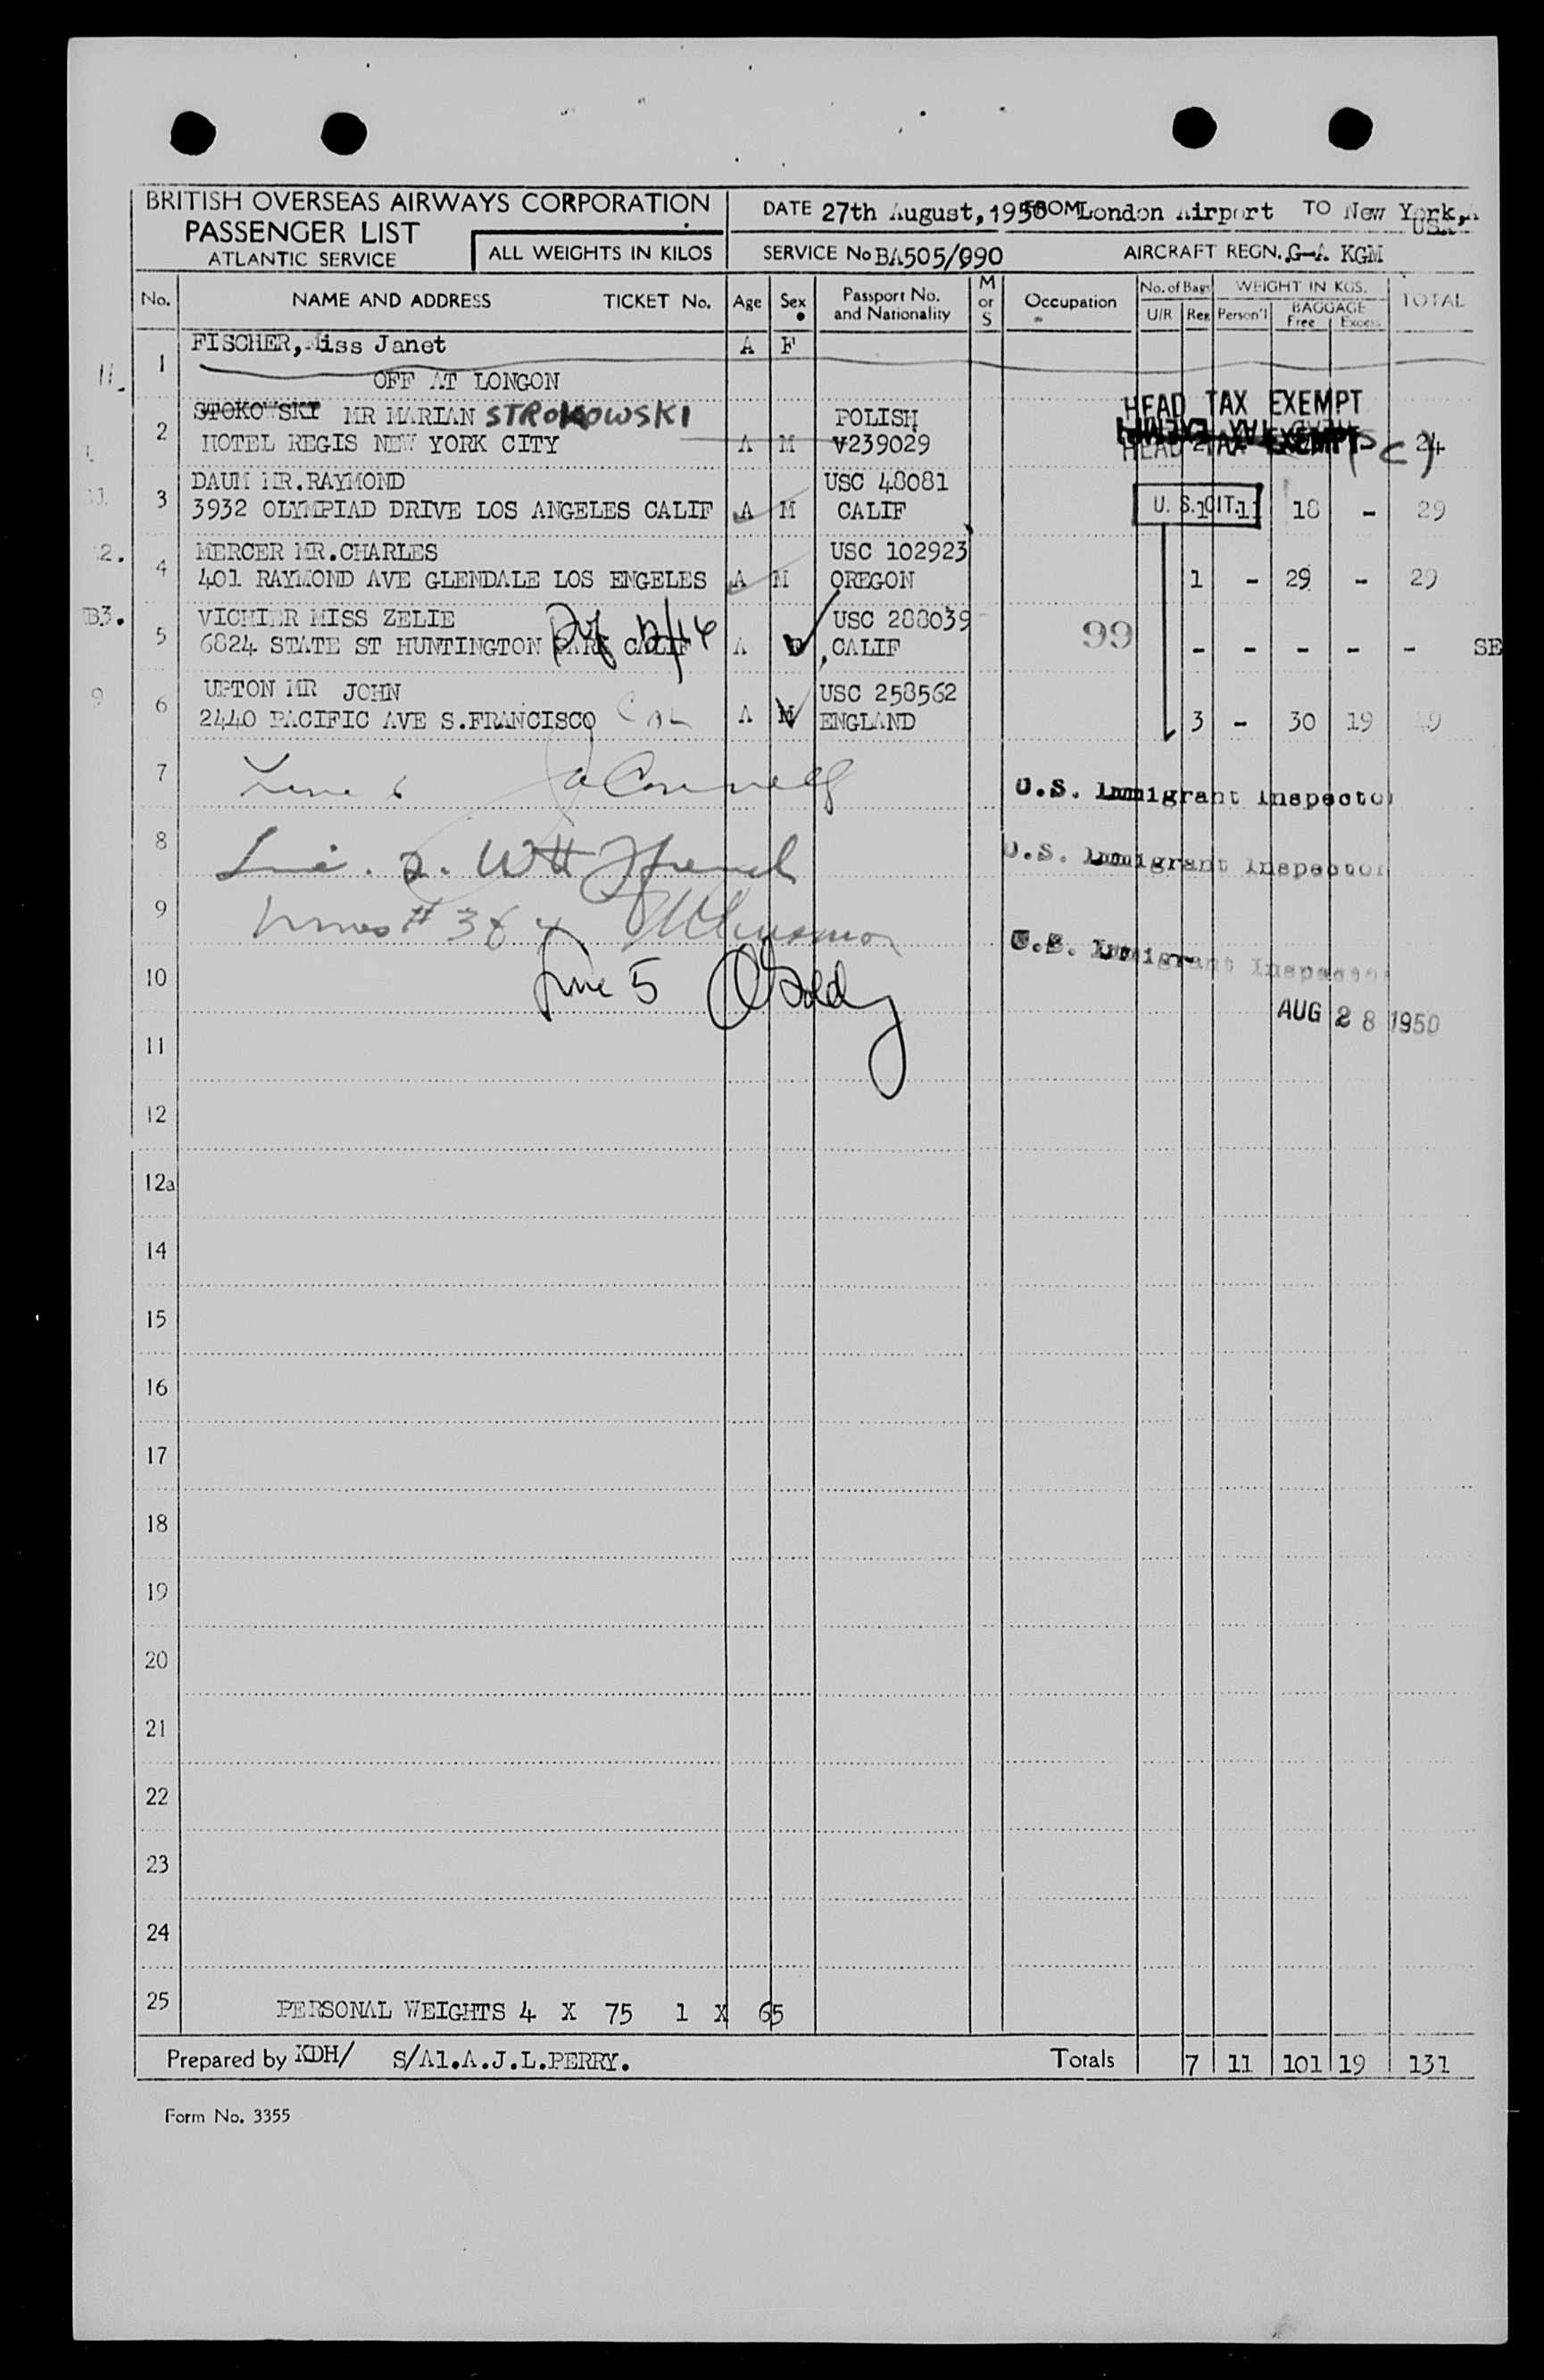 BRITISH OVERSEAS AIRWAYS CORPORATION
PASSENGER LIST
ATLANTIC SERVICE
ALL WEIGHTS IN KILOS
DATE 27th August, 1950 FROM London Airport TO New York, USA
SERVICE No BA505/990 AIRCRAFT REGN. G-A KGM
No. NAME AND ADDRESS TICKET No. Age Sex Passport No. and Nationality M or S Occupation No. of Bags U/R Reg WEIGHT IN KGS. Person'l BAGGAGE Free Excess TOTAL
1 FISCHER, Miss Janet A F
OFF AT LONGON
11.
HEAD TAX EXEMPT
2 STOKOWSKI MR MARIAN STROKOWSKI POLISH
HOTEL REGIS NEW YORK CITY A M V239029 HEAD TAX EXEMPT 24
3 DAUM MR.RAYMOND USC 48081
3932 OLYMPIAD DRIVE LOS ANGELES CALIF A M CALIF U. S. CIT. 1 11 18 - 29
12.
4 MERCER MR.CHARLES USC 102923
401 RAYMOND AVE GLENDALE LOS ENGELES A M OREGON 1 - 29 - 29
B3.
5 VICHIER MISS ZELIE USC 288039
6824 STATE ST HUNTINGTON PARK CALIF A CALIF 99 - - - - - SE
9
6 UPTON MR JOHN USC 258562
2440 PACIFIC AVE S.FRANCISCO CAL A M ENGLAND 3 - 30 19 49
7 Line 6 U.S. Immigrant Inspector
8 U.S. Immigrant Inspector
9 U.S. Immigrant Inspector
10 Line 5
AUG 28 1950
11
12
12a
14
15
16
17
18
19
20
21
22
23
24
25 PERSONAL WEIGHTS 4 X 75 1 X 65
Prepared by KDH/ S/A1.A.J.L.PERRY. Totals 7 11 101 19 131
Form No. 3355